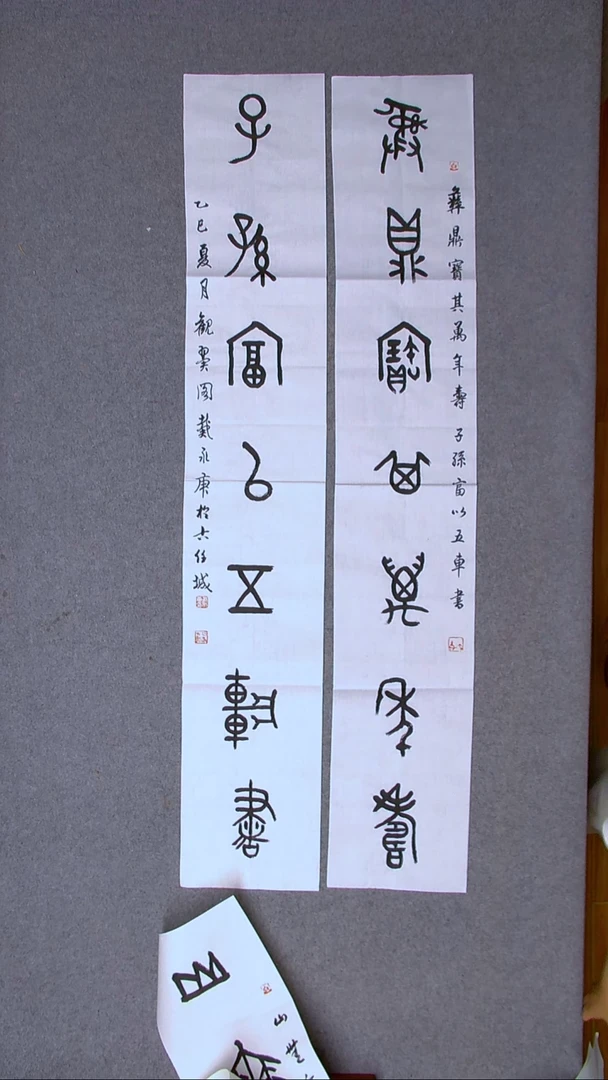 彝鼎寶其萬年壽
彝鼎寶其萬年壽 子孫富以五車書
子孫富以五車書
乙巳夏月觀翼閣戴永康於古任城
山